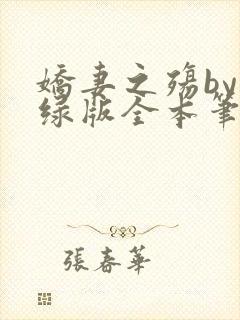 嬌妻之殤by
绿版全本筆
張春華